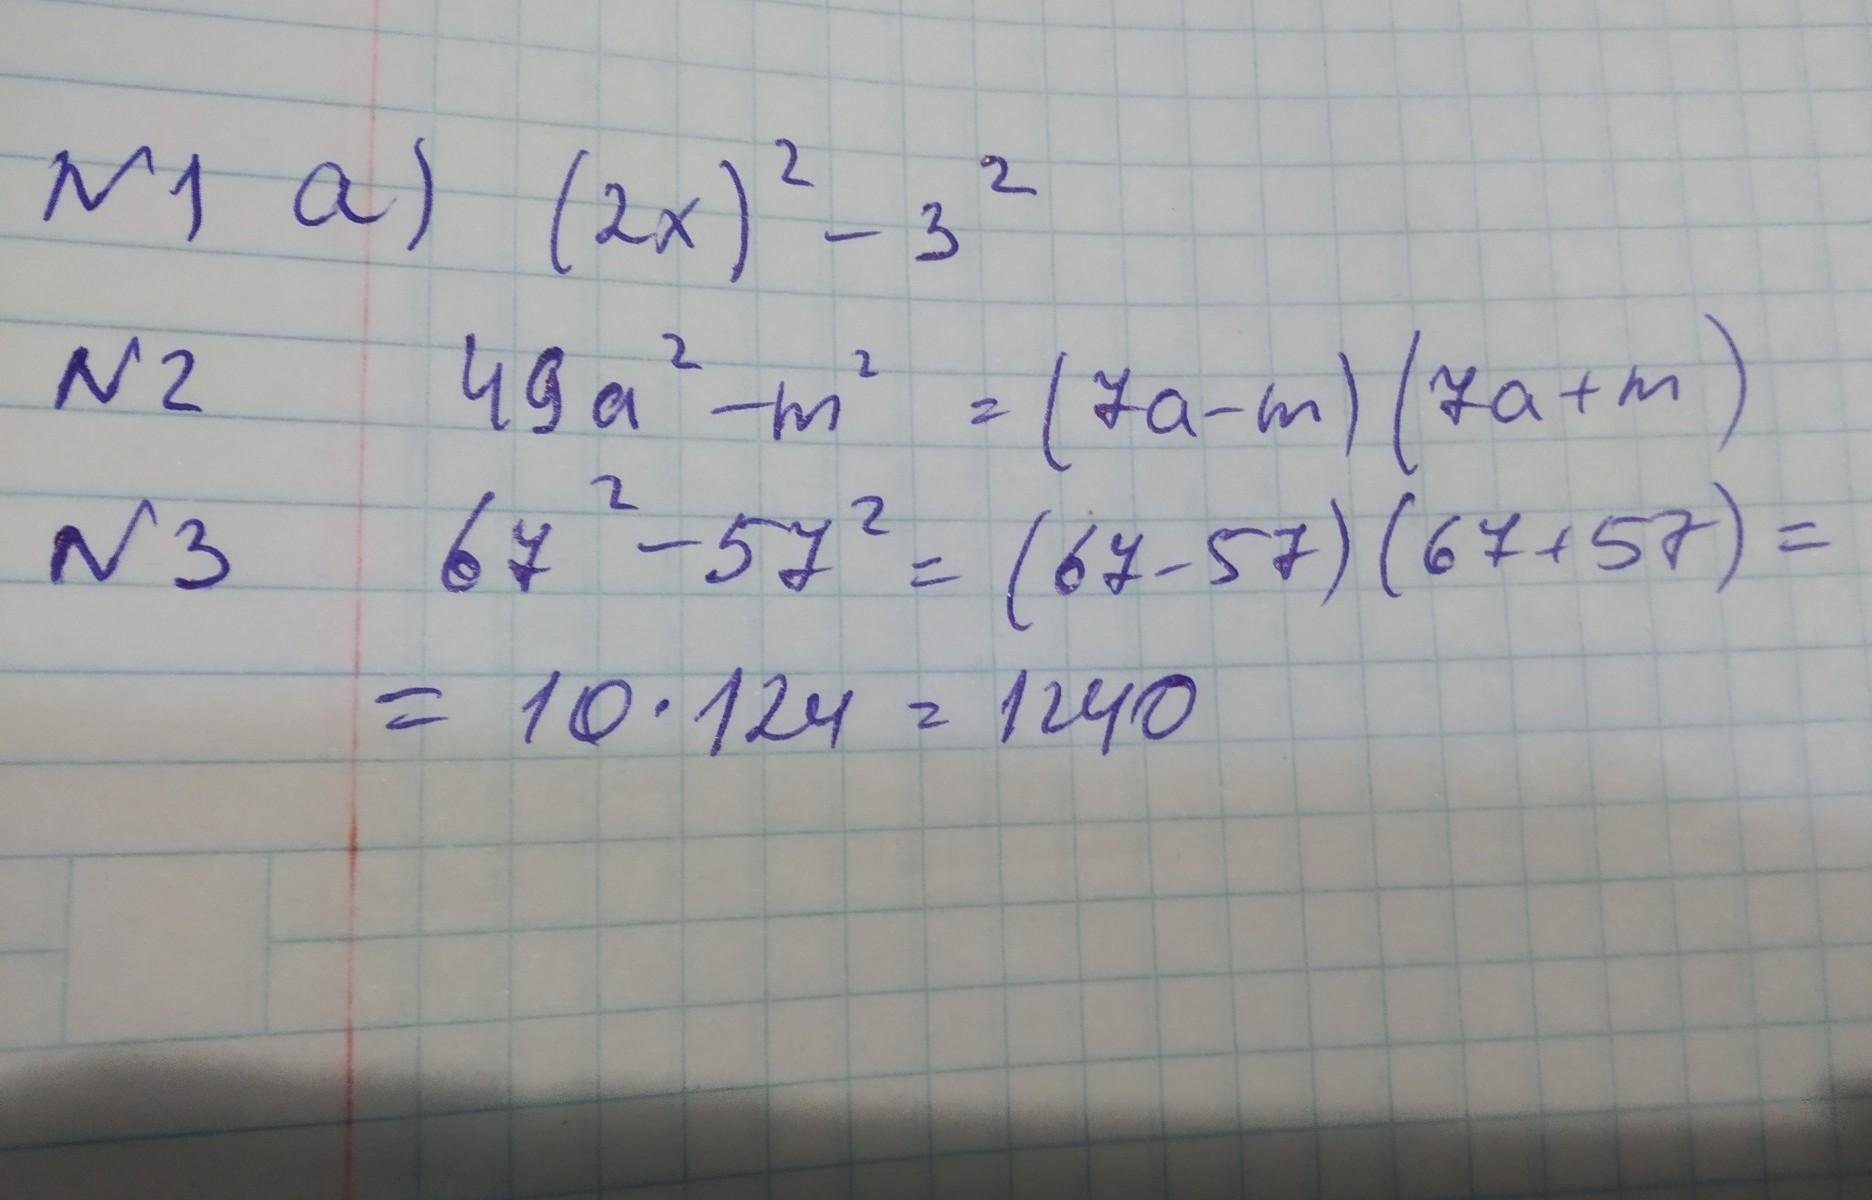 N1 a) (2x)² - 3²
N2 49a² - m² = (7a - m)(7a + m)
N3 67² - 57² = (67 - 57)(67 + 57) =
= 10 · 124 = 1240